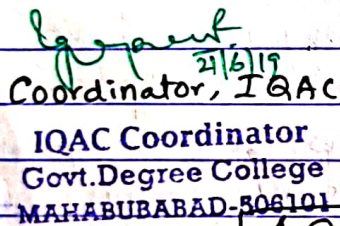 21/6/19
Coordinator, IQAC
IQAC Coordinator
Govt.Degree College
MAHABUBABAD-506101